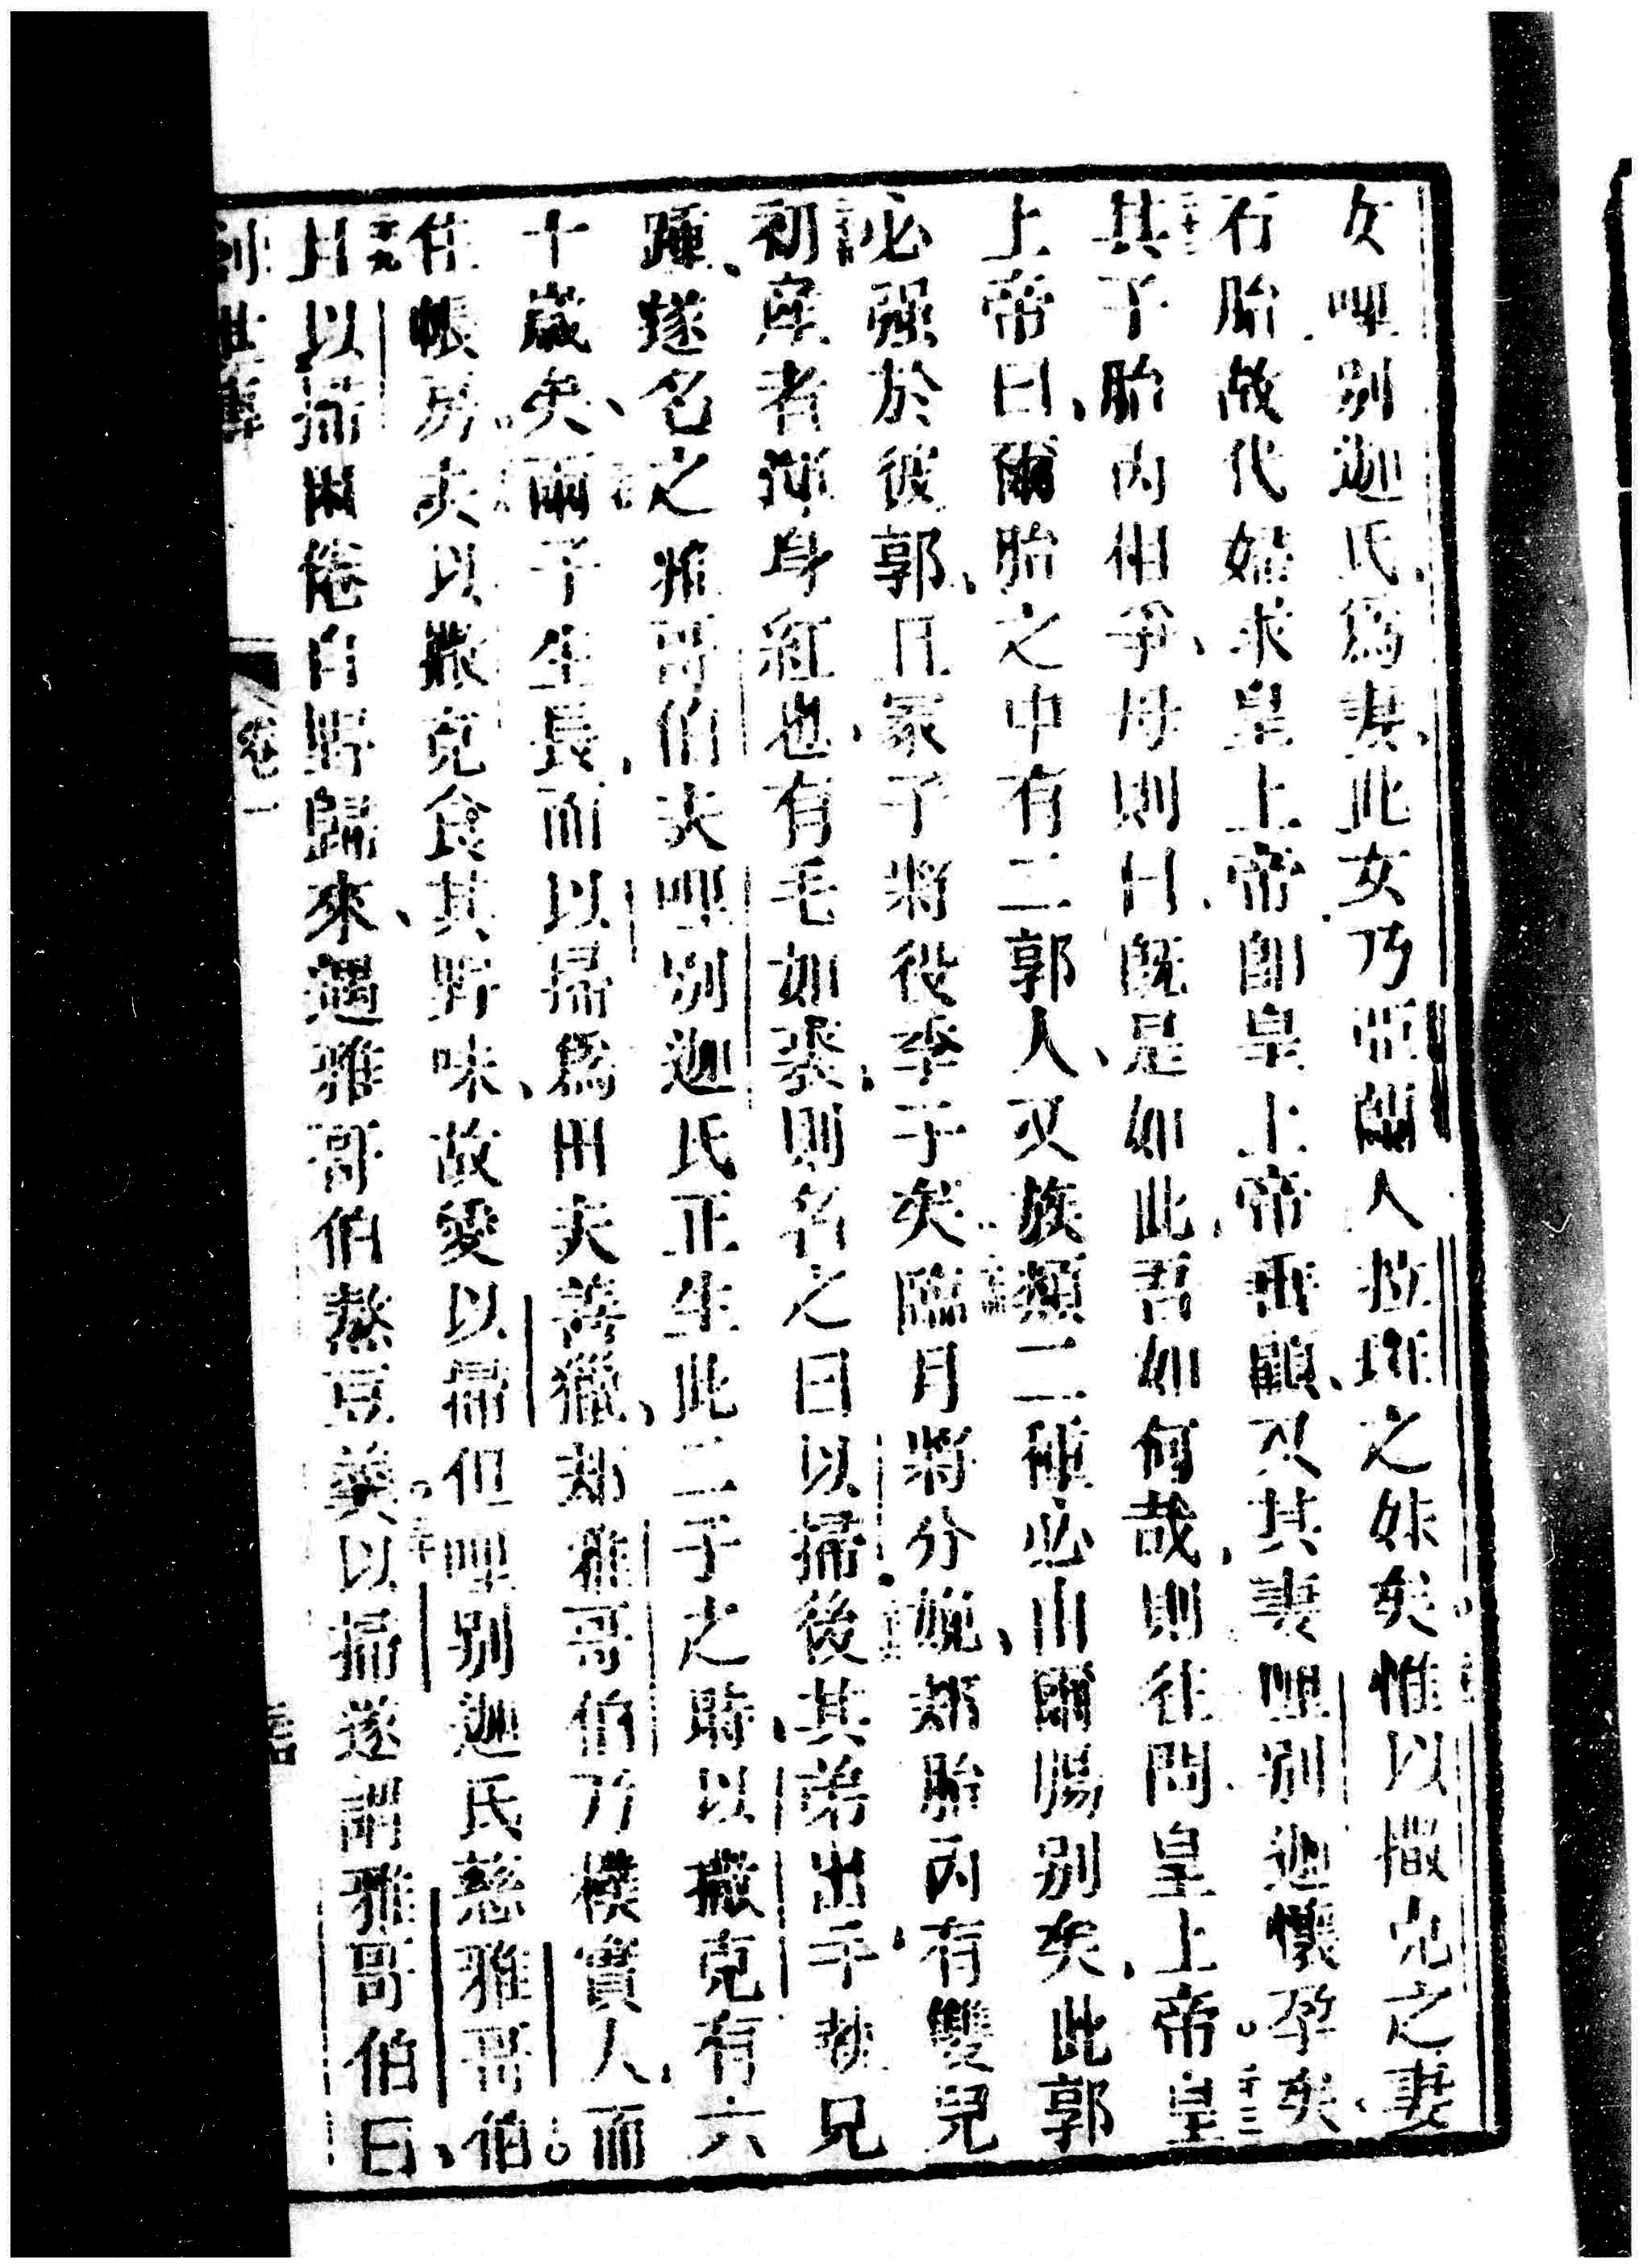 女哩別迦氏、爲妻、此女乃亞蘭人拉班之妹矣。惟以撒克之妻
石胎、故代婦求皇上帝、卽皇上帝垂顧、及其妻哩別迦懷孕矣、
其子胎內相爭、母則曰、既是如此、吾如何哉、則往問皇上帝。皇
上帝曰、爾胎之中有二郭人、又族類二種必由爾腸別矣、此郭
必强於彼郭、且冢子將役季子矣。臨月將分娩、郍胎內有雙兒
初產者渾身紅也、有毛如裘、則名之曰以掃後其弟出手執兄
踵、遂名之雅哥伯夫哩別迦氏正生此二子之時、以撒克有六
十歲矣、兩子生長、而以掃爲田夫善獵、郍雅哥伯乃樸實人、而
住帳房。夫以撒克食其野味、故愛以掃但哩別迦氏慈雅哥伯、
且以掃困倦自野歸來、遇雅哥伯熬豆羹。以掃遂謂雅哥伯曰
創世傳
卷一